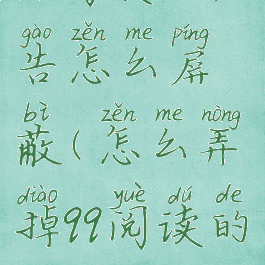 gào zěn me píng
告怎么屏
bì zěn me nòng
蔽(怎么弄
diào yuè dú de
掉99阅读的